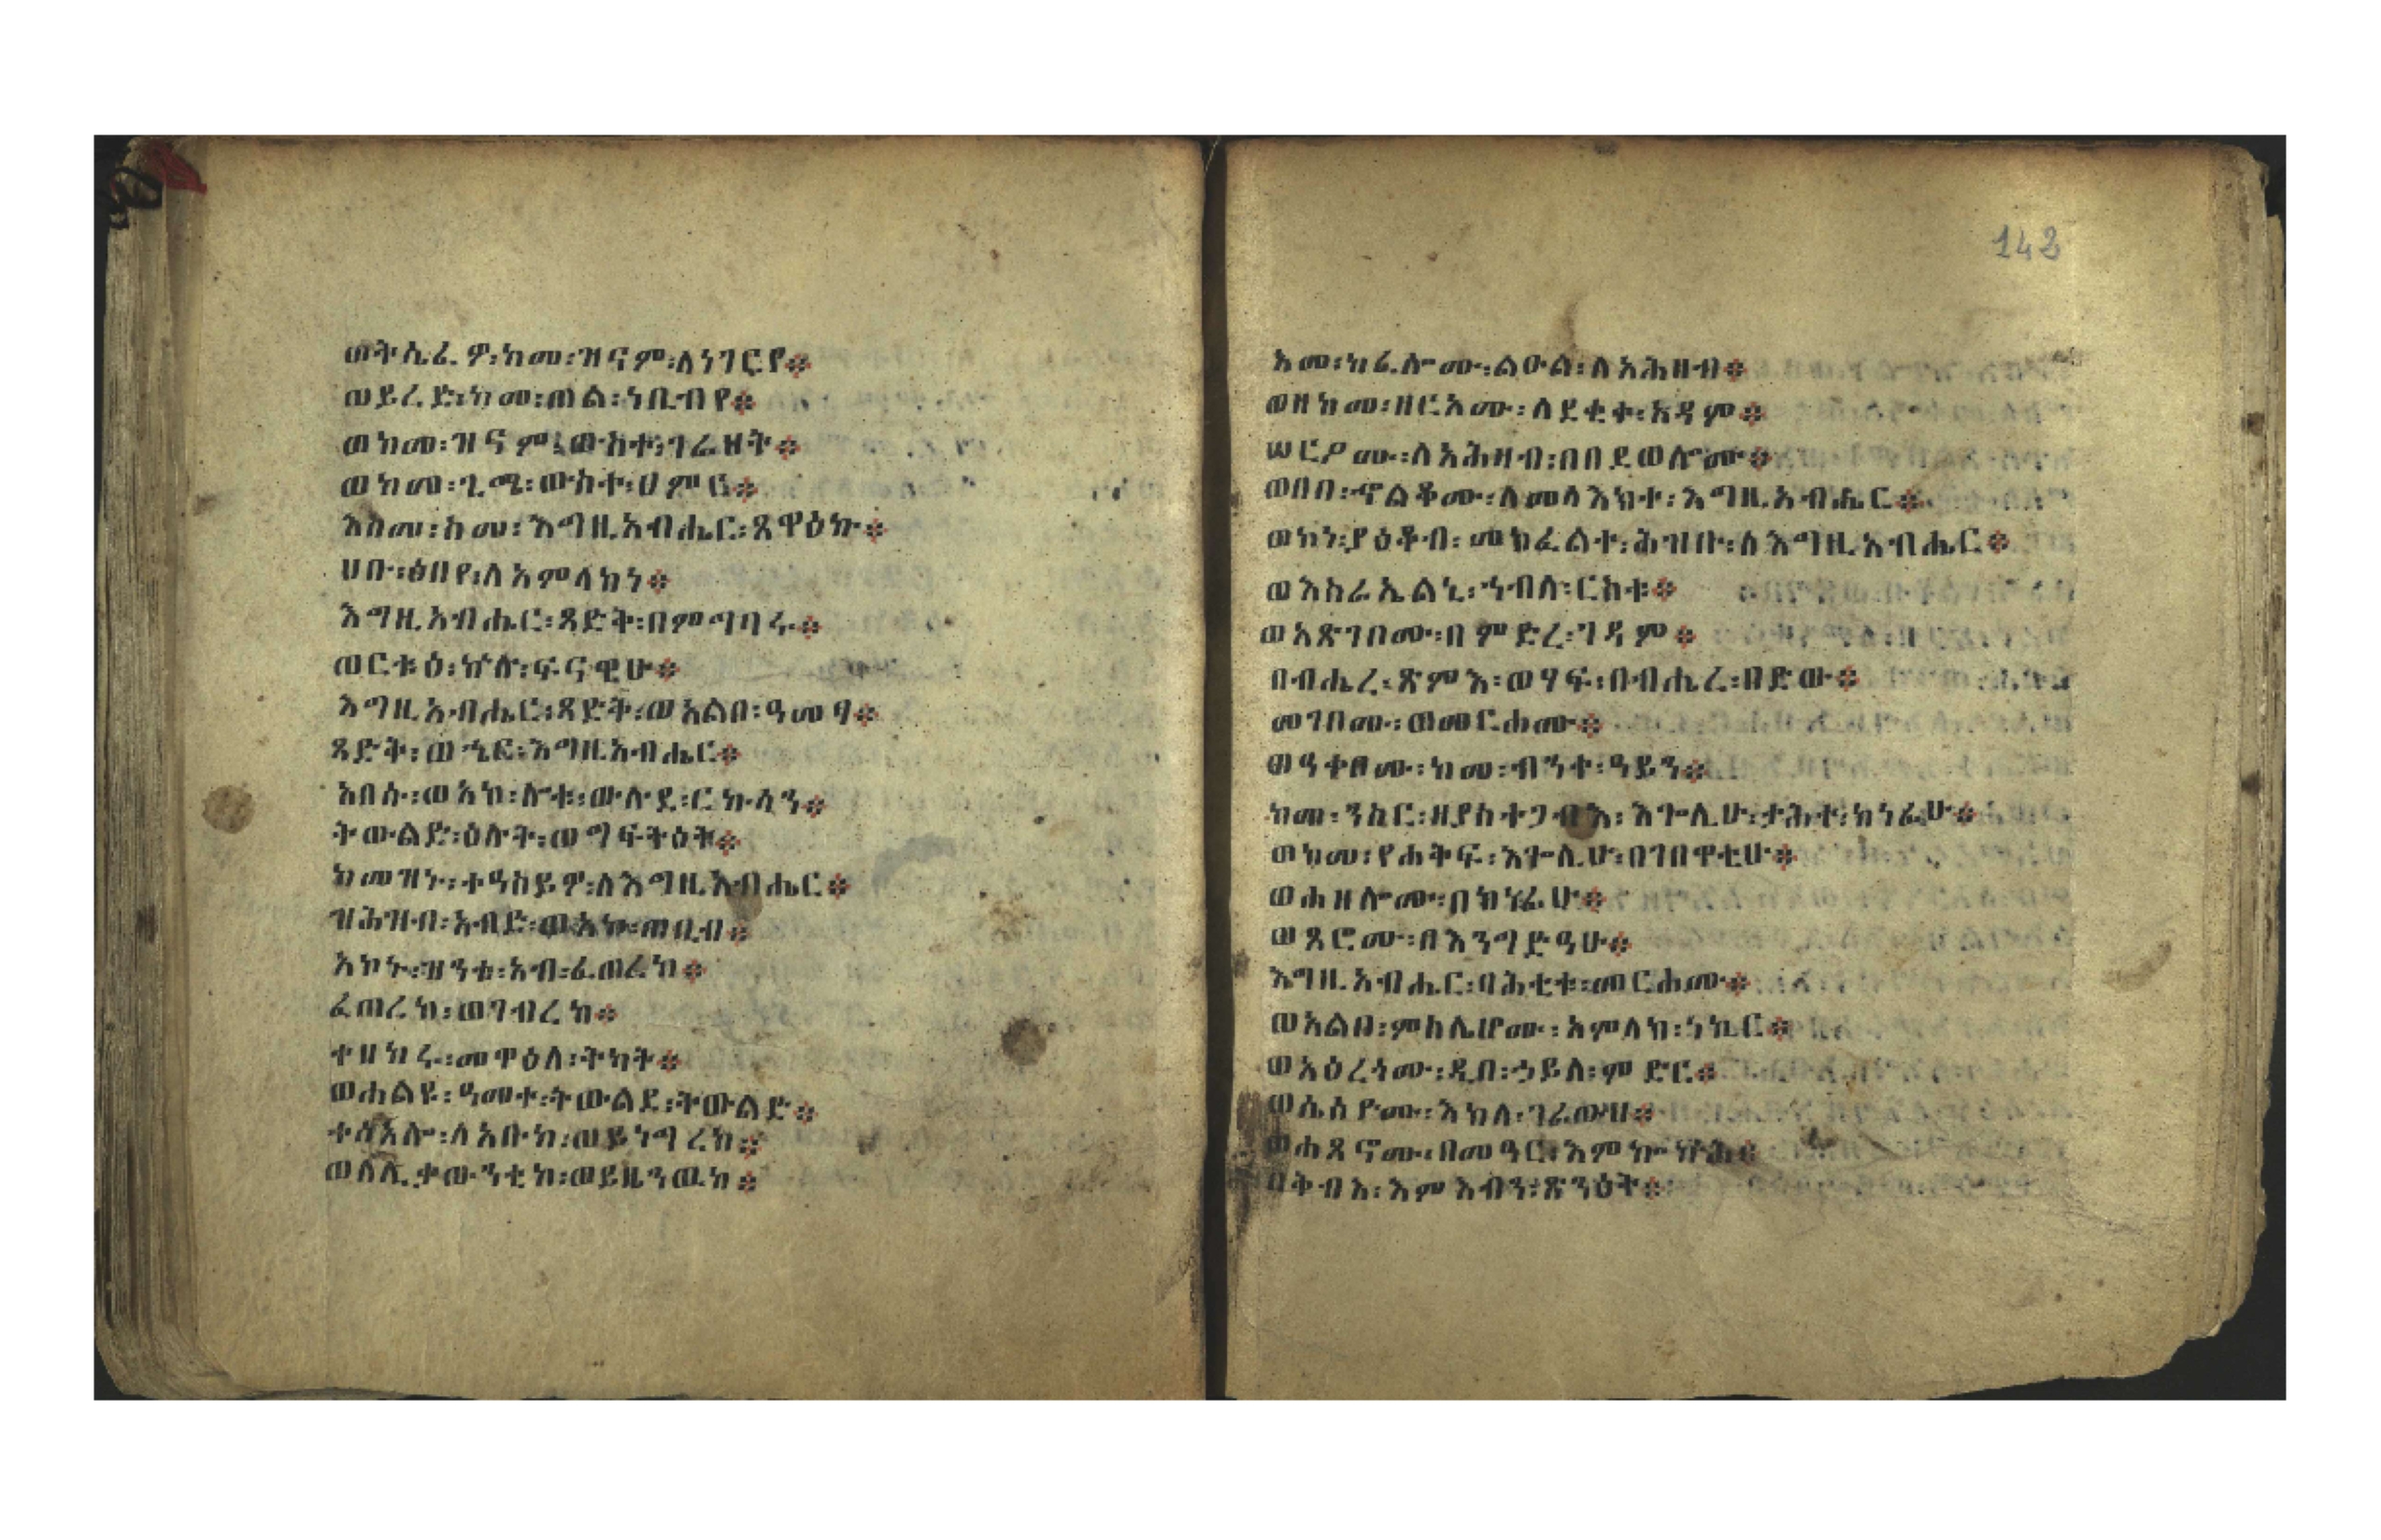 ወትሴፈዎ፡ከመ፡ዝናም፡ለነገርየ፨
ወይረድ፡ከመ፡ጠል፡ነቢብየ፨
ወከመ፡ዝናም፡ውስተ፡ገራህት፨
ወከመ፡ጊሜ፡ውስተ፡ሀምር፨
እስመ፡ስመ፡እግዚአብሔር፡ጸዋዕኩ፨
ሀቡ፡ዕበየ፡ለአምላክነ፨
እግዚአብሔር፡ጻድት፡በምግባሩ፨
ወርቱዕ፡ኵሉ፡ፍናዊሁ፨
እግዚአብሔር፡ጻድት፡ወአልቦ፡ዓመፃ፨
ጻድት፡ወኄር፡እግዚአብሔር፨
አበሱ፡ወአኮ፡ሎቱ፡ውሉደ፡ርኩሳን፨
ትውልድ፡ዕሉት፡ወግፍትዕት፨
ከመዝኑ፡ተዓስይዎ፡ለእግዚአብሔር፨
ዝሕዝብ፡አብድ፡ወአኮ፡ጠቢብ፨
አኮኑ፡ዝንቱ፡አብ፡ፈጠረከ፨
ፈጠረከ፡ወገብረከ፨
ተዘከሩ፡መዋዕለ፡ትካት፨
ወሐልዩ፡ዓመተ፡ትውልደ፡ትውልድ፨
ተስአሎ፡ለአቡከ፡ወይነግረከ፨
ወለሊቃውንቲከ፡ወይዜንዉከ፨
142
አመ፡ከፈሎሙ፡ልዑል፡ለአሕዛብ፨
ወዘከመ፡ዘርአሙ፡ለደቂቀ፡አዳም፨
ሠርዖሙ፡ለአሕዛብ፡በበደወሎሙ፨
ወበበ፡ኆልቆሙ፡ለመላእክተ፡እግዚአብሔር፨
ወኮነ፡ያዕቆብ፡መክፈልተ፡ሕዝቡ፡ለእግዚአብሔር፨
ወእስራኤልኒ፡ኀብለ፡ርስቱ፨
ወአጽገቦሙ፡በምድረ፡ገዳም፨
በብሔረ፡ጽምእ፡ወሃፍ፡በብሔረ፡በድው፨
መገቦሙ፡ወመርሐሙ፨
ወዓቀቦሙ፡ከመ፡ብንተ፡ዓይን፨
ከመ፡ንስር፡ዘያስተጋብእ፡እጕሊሁ፡ታሕተ፡ክነፊሁ፨
ወከመ፡የሐትፍ፡እጕሊሁ፡በገበዋቲሁ፨
ወሐዘሎሙ፡በክነፊሁ፨
ወጾሮሙ፡በእንግድዓሁ፨
እግዚአብሔር፡ባሕቲቱ፡መርሐሙ፨
ወአልቦ፡ምስሌሆሙ፡አምላክ፡ነኪር፨
ወአዕረጎሙ፡ዲበ፡ኃይለ፡ምድር፨
ወሴሰዮሙ፡እክለ፡ገራውህ፨
ወሐፀኖሙ፡በመዓር፡እምኰኵሕ፨
በቅብእ፡እምእብን፡ጽንዕት፨